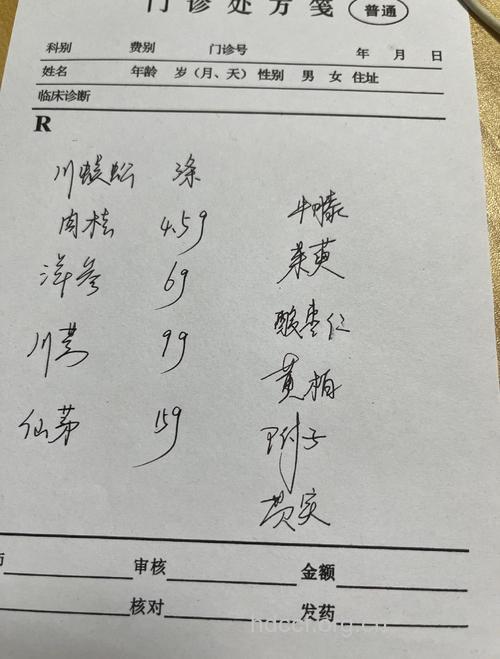 门诊处方笺 普通
科别 费别 门诊号 年 月 日
姓名 年龄 岁（月、天） 性别 男 女 住址
临床诊断
R
川蜈蚣 条
肉桂 4.5g
洋参 6g
川芎 9g
仙茅 15g
牛膝
茱萸
酸枣仁
黄柏
附子
芡实
审核 金额
核对 发药